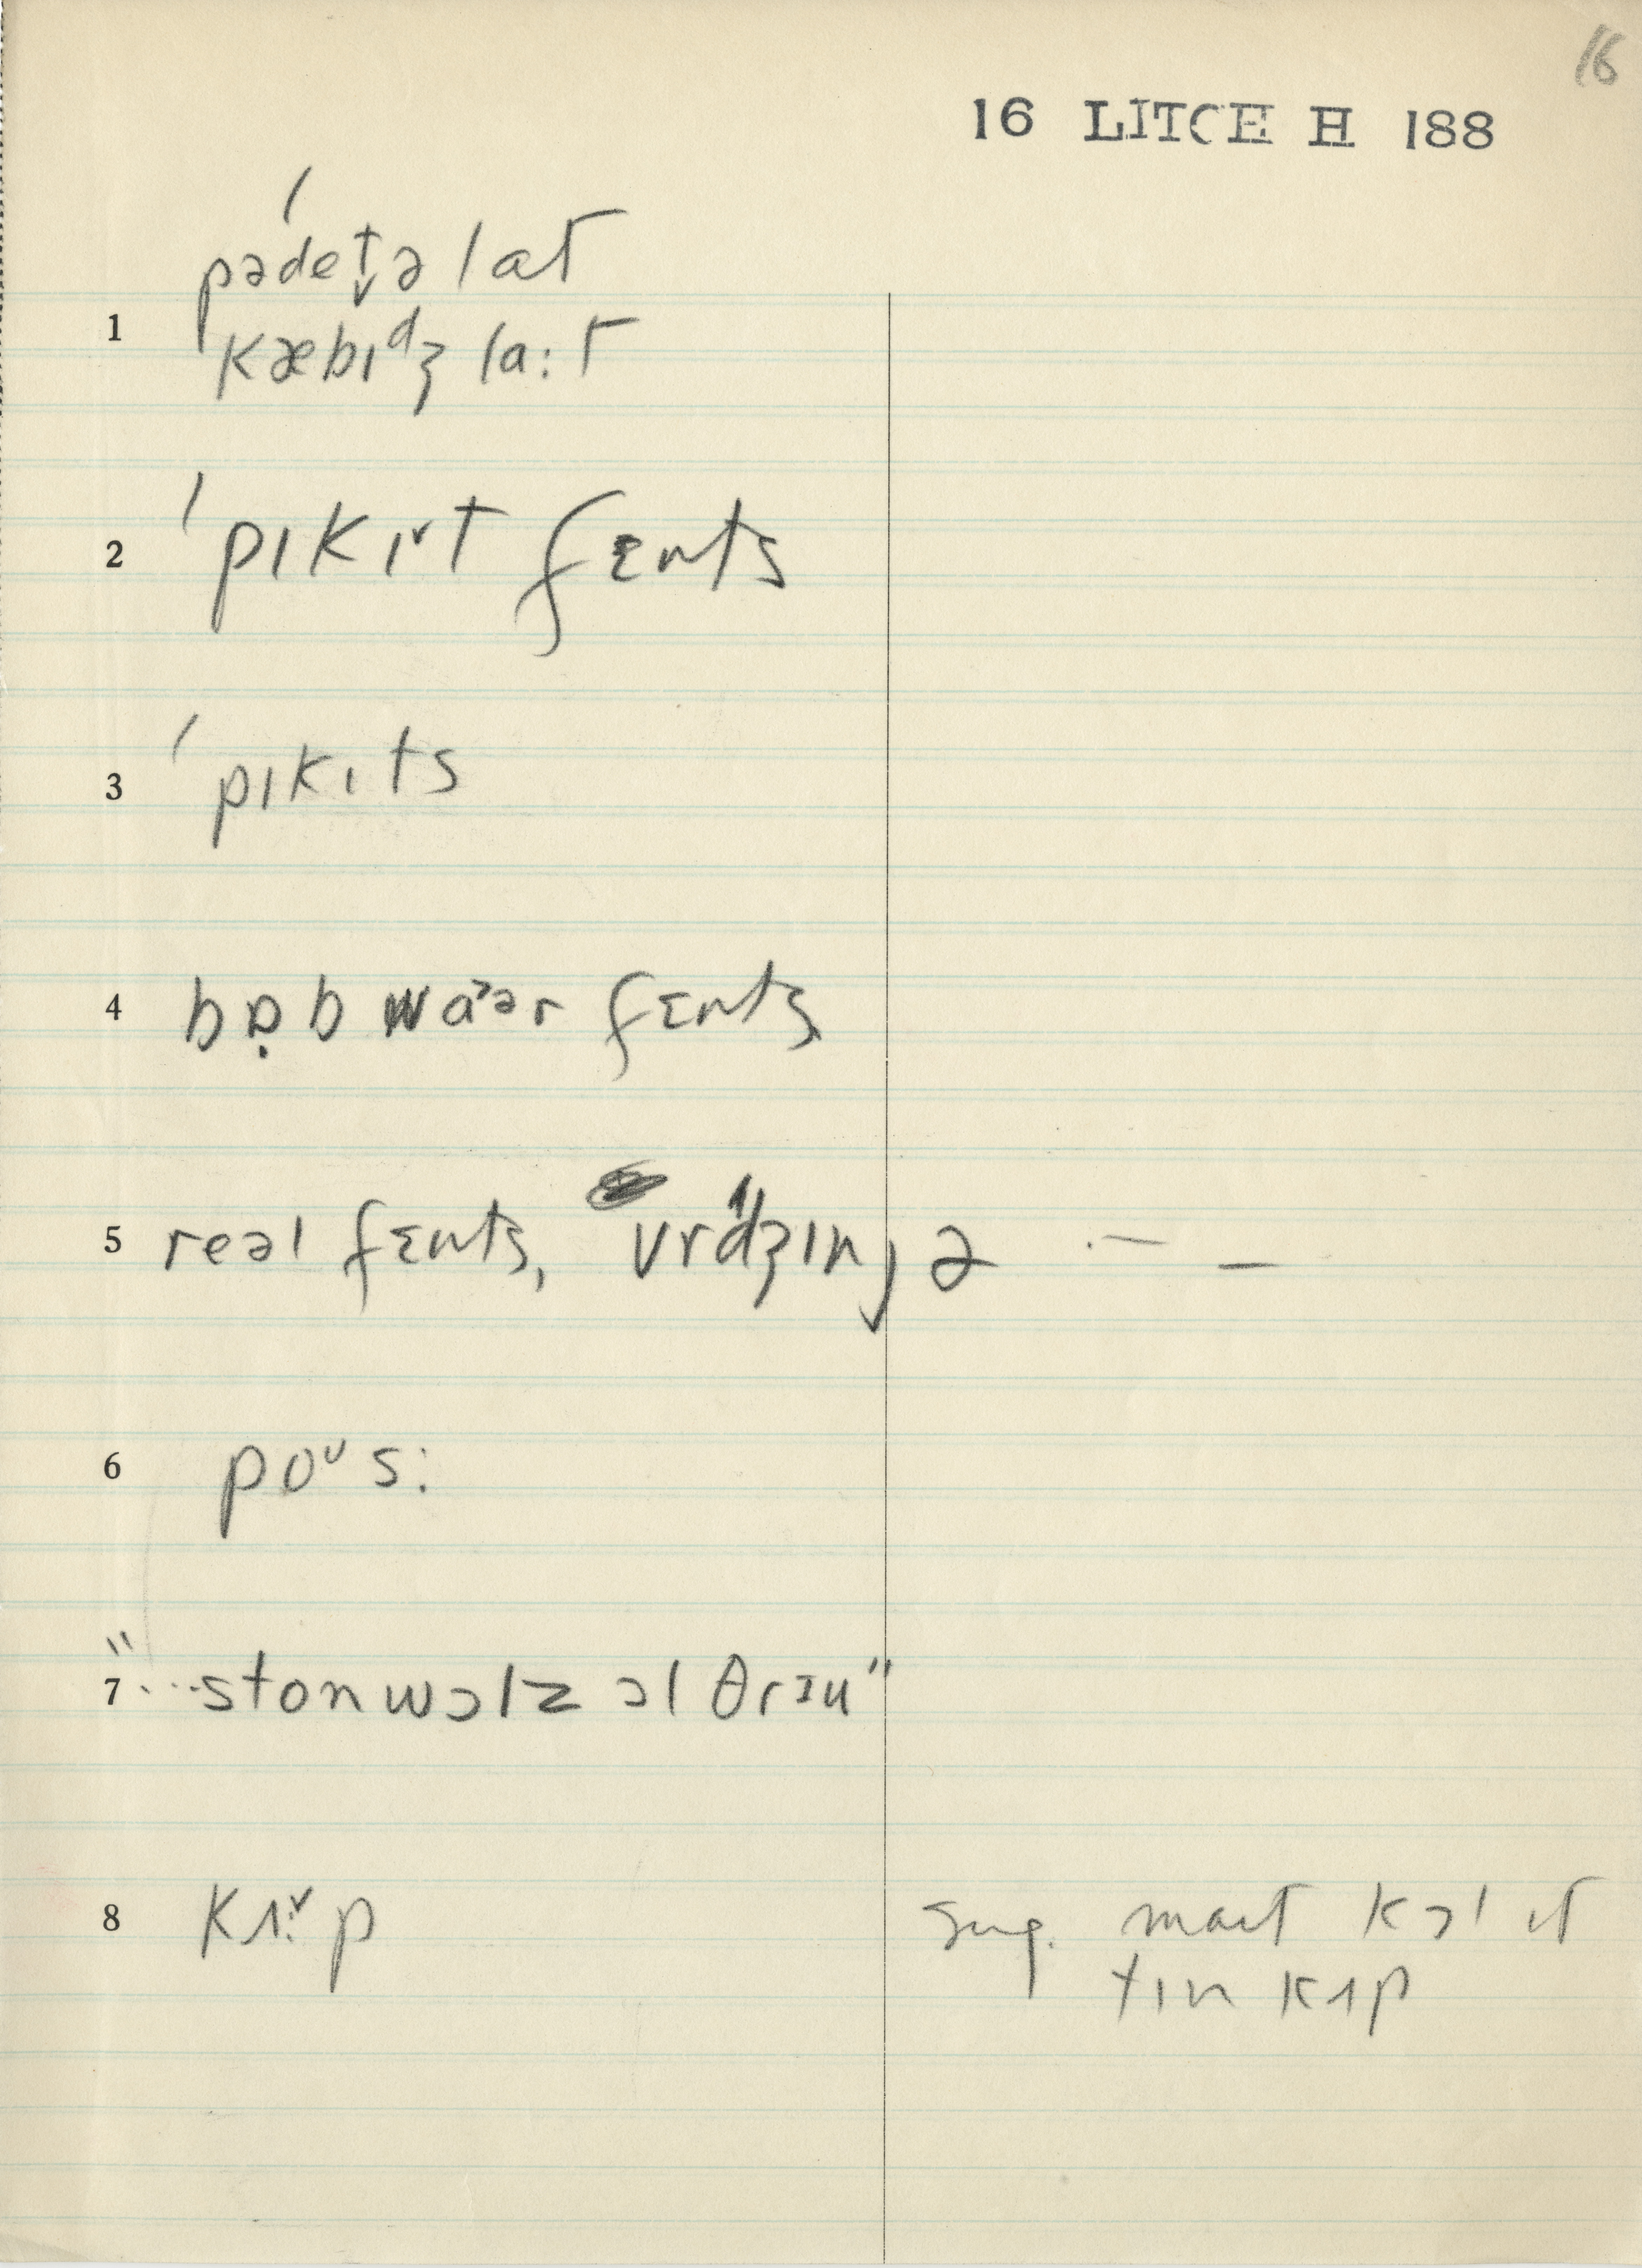 16
16 LITCH H 188
pədet̬ə lat
1 kæbɪᵈʒ̥ la:t
2 ˈpɪkɪ˅t fɛnts
3 ˈpɪkɪts
4 bɒ̣b waˀər fɛnts
5 reəl fɛnts, vrˈdʒ̥ɪnjə — —
6 poᶷs:
7 "...stonwɔlz ɔl θrɪu"
8 kʌ:˅p sug. mait kɔl it
tɪn kʌp